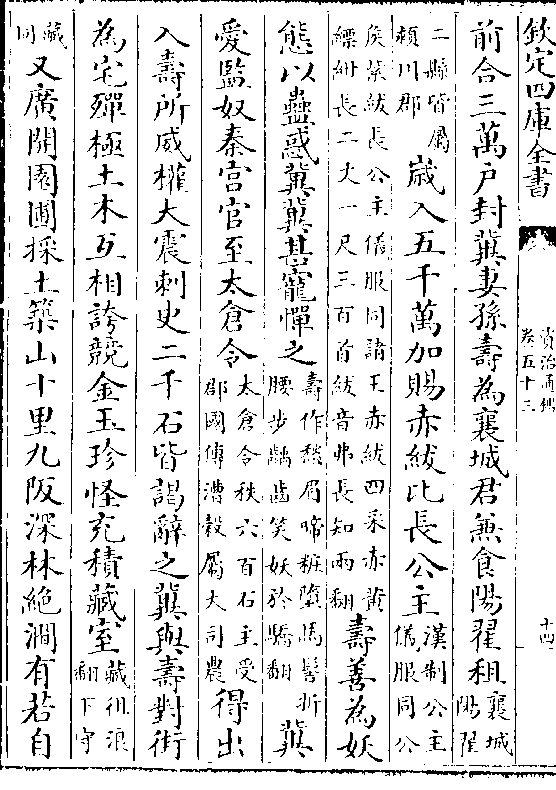 欽定四庫全書
資治通鑑
卷五十三
十四
前合三萬戶封冀妻孫壽為襄城君兼食陽翟租襄城陽翟
二縣皆屬潁川郡歲入五千萬加賜赤紱比長公主漢制公主儀服同公
侯紫紱長公主儀服同諸王赤紱四采赤黃縹紺長二丈一尺三百首紱音弗長知兩翻壽善為妖
態以蠱惑冀冀甚寵憚之壽作愁眉啼粧墮馬髻折腰步齲齒笑妖於驕翻冀
愛監奴秦宮官至太倉令太倉令秩六百石主受郡國傳漕穀屬大司農得出
入壽所威權大震刺史二千石皆謁辭之冀與壽對街
為宅殫極土木互相誇競金玉珍怪充積藏室藏徂浪翻下守
藏同又廣開園圃採土築山十里九阪深林絶澗有若自